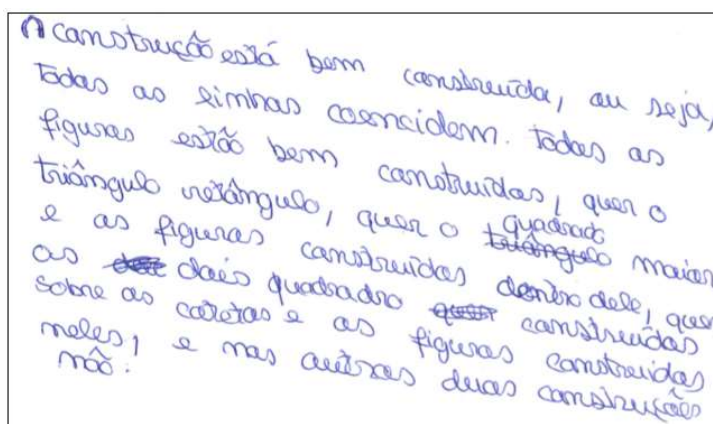 A construção está bem construída, ou seja,
todas as linhas coencidem. Todas as
figuras estão bem construídas, quer o
triângulo retângulo, quer o quadrado maior
e as figuras construídas dentro dele, quer
os dois quadrado construídas
sobre os catetos e as figuras construidas
neles, e nas outras duas construções
não.